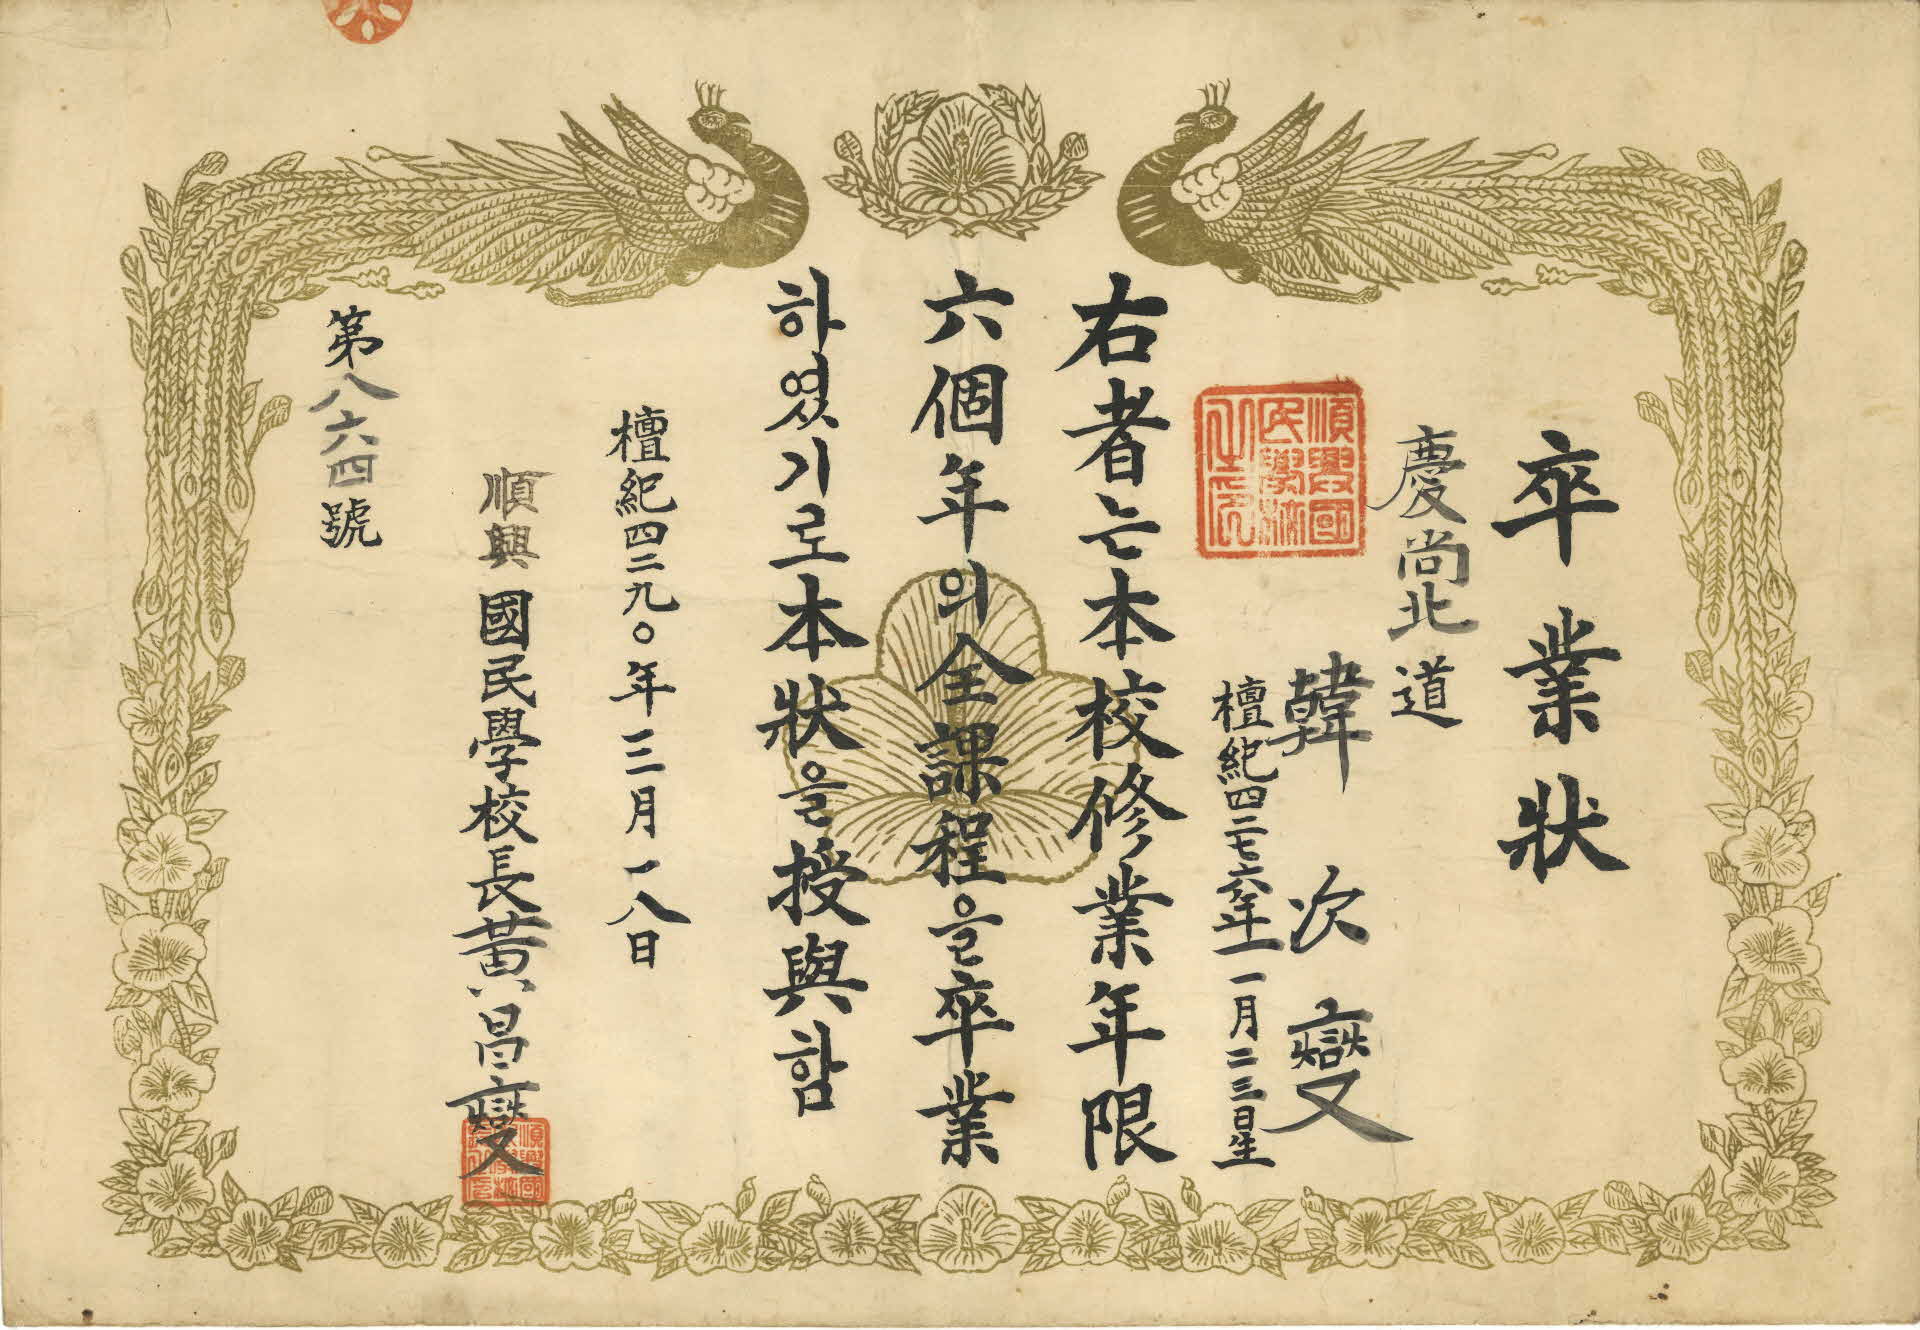 卒業狀
慶尚北道
韓次燮
檀紀四二七六年一一月二三日生
順興國
民學校
之印
右者는本校修業年限
六個年의全課程을卒業
하였기로本狀을授與함
檀紀四二九〇年三月一八日
順興國民學校長黃昌燮
第八六四號